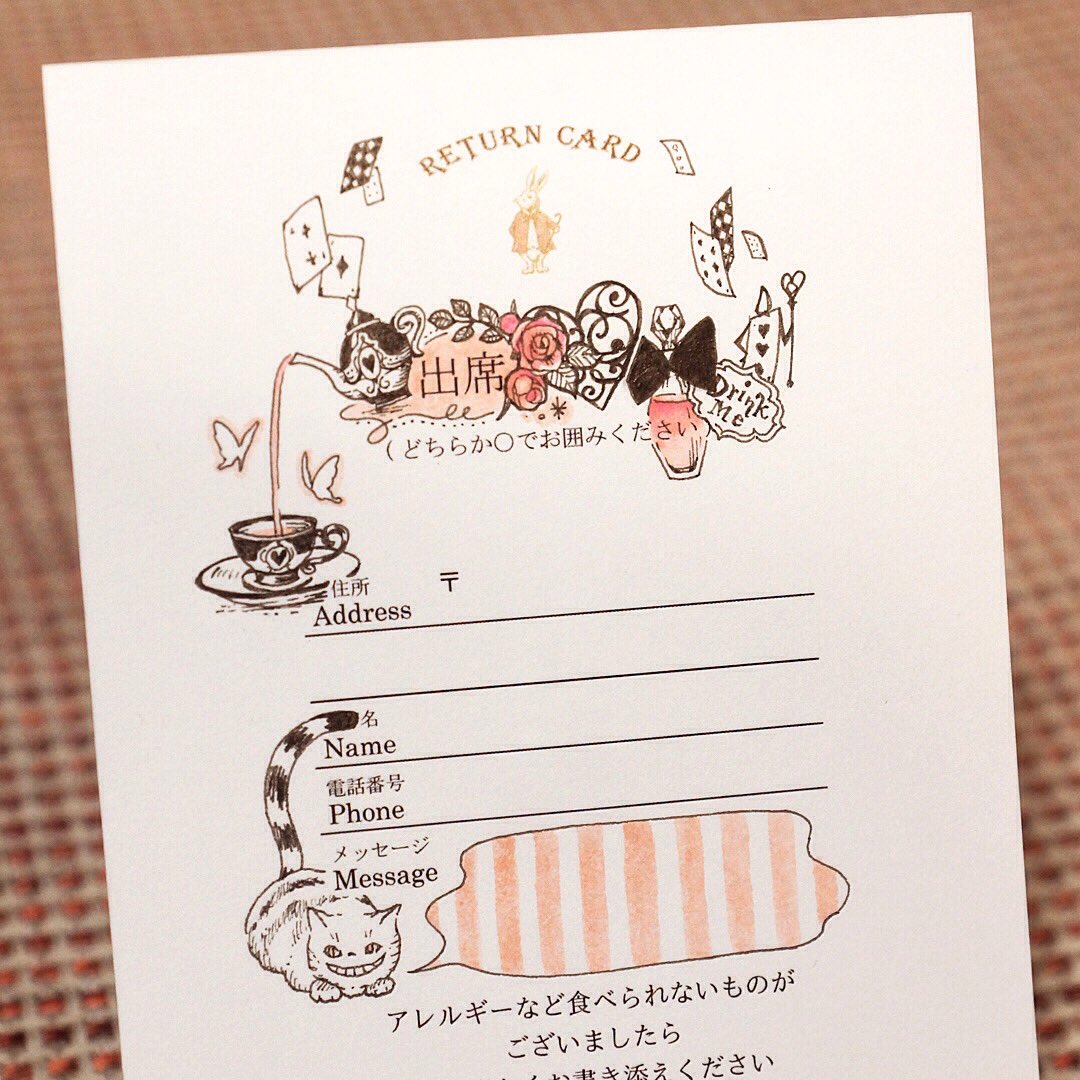 RETURN CARD
出席
Drink Me
(どちらか○でお囲みください)
住所 〒
Address
名
Name
電話番号
Phone
メッセージ
Message
アレルギーなど食べられないものが
ございましたら
お書き添えください